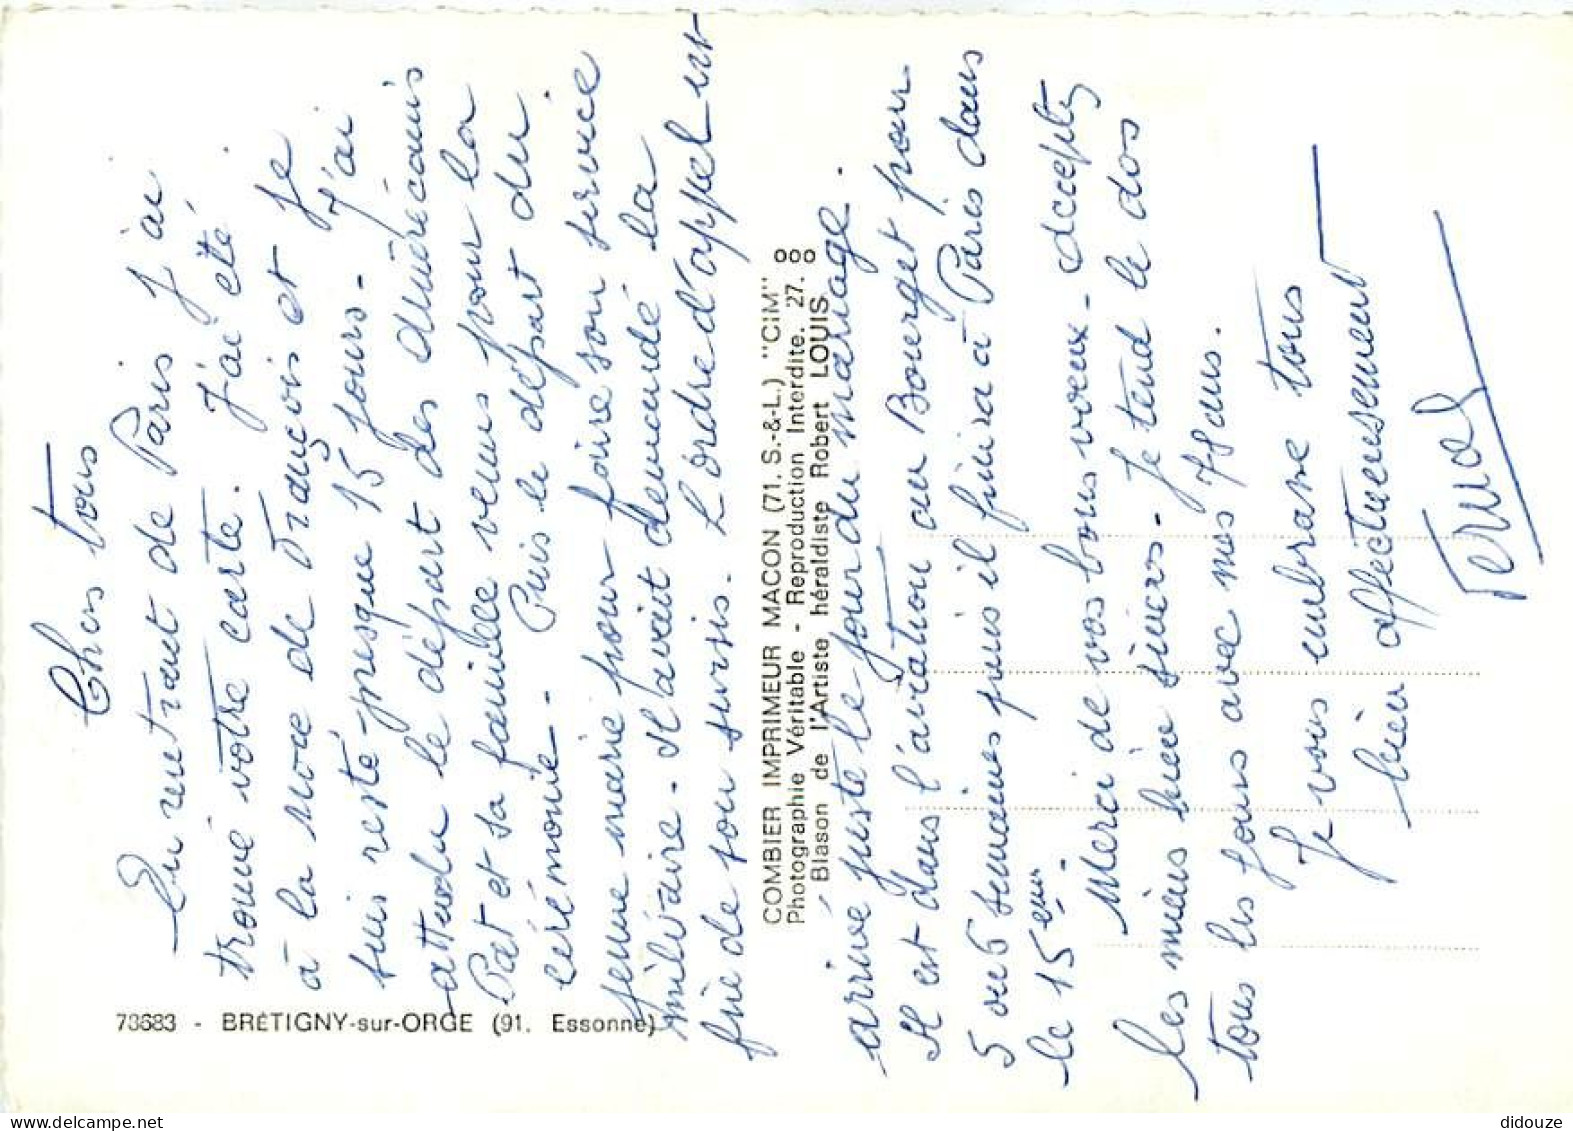 Chers tous
En rentrant de Paris j'ai
trouvé votre carte. J'ai été
à la noce de François et je
suis resté presque 15 jours - J'ai
attendu le départ des américains
Pat et sa famille venus pour la
cérémonie - Puis le départ du
jeune marié pour faire son service
militaire - Il avait demandé la
fin de son sursis. L'ordre d'appel est
arrivé juste le jour du mariage.
Il est dans l'aviation au Bourget pour
5 ou 6 semaines puis il finira à Paris dans
le 15em -
Merci de vos bons voeux - Acceptez
les miens bien sincers - Je tend le dos
tous les jours avec mes ans.
Je vous embrasse tous
bien affectueusement
73683 - BRÉTIGNY-sur-ORGE (91. Essonne)
COMBIER IMPRIMEUR MACON (71. S.-&-L.) "CIM"
Photographie Véritable - Reproduction Interdite. 27.
Blason de l'Artiste héraldiste Robert LOUIS
didouze